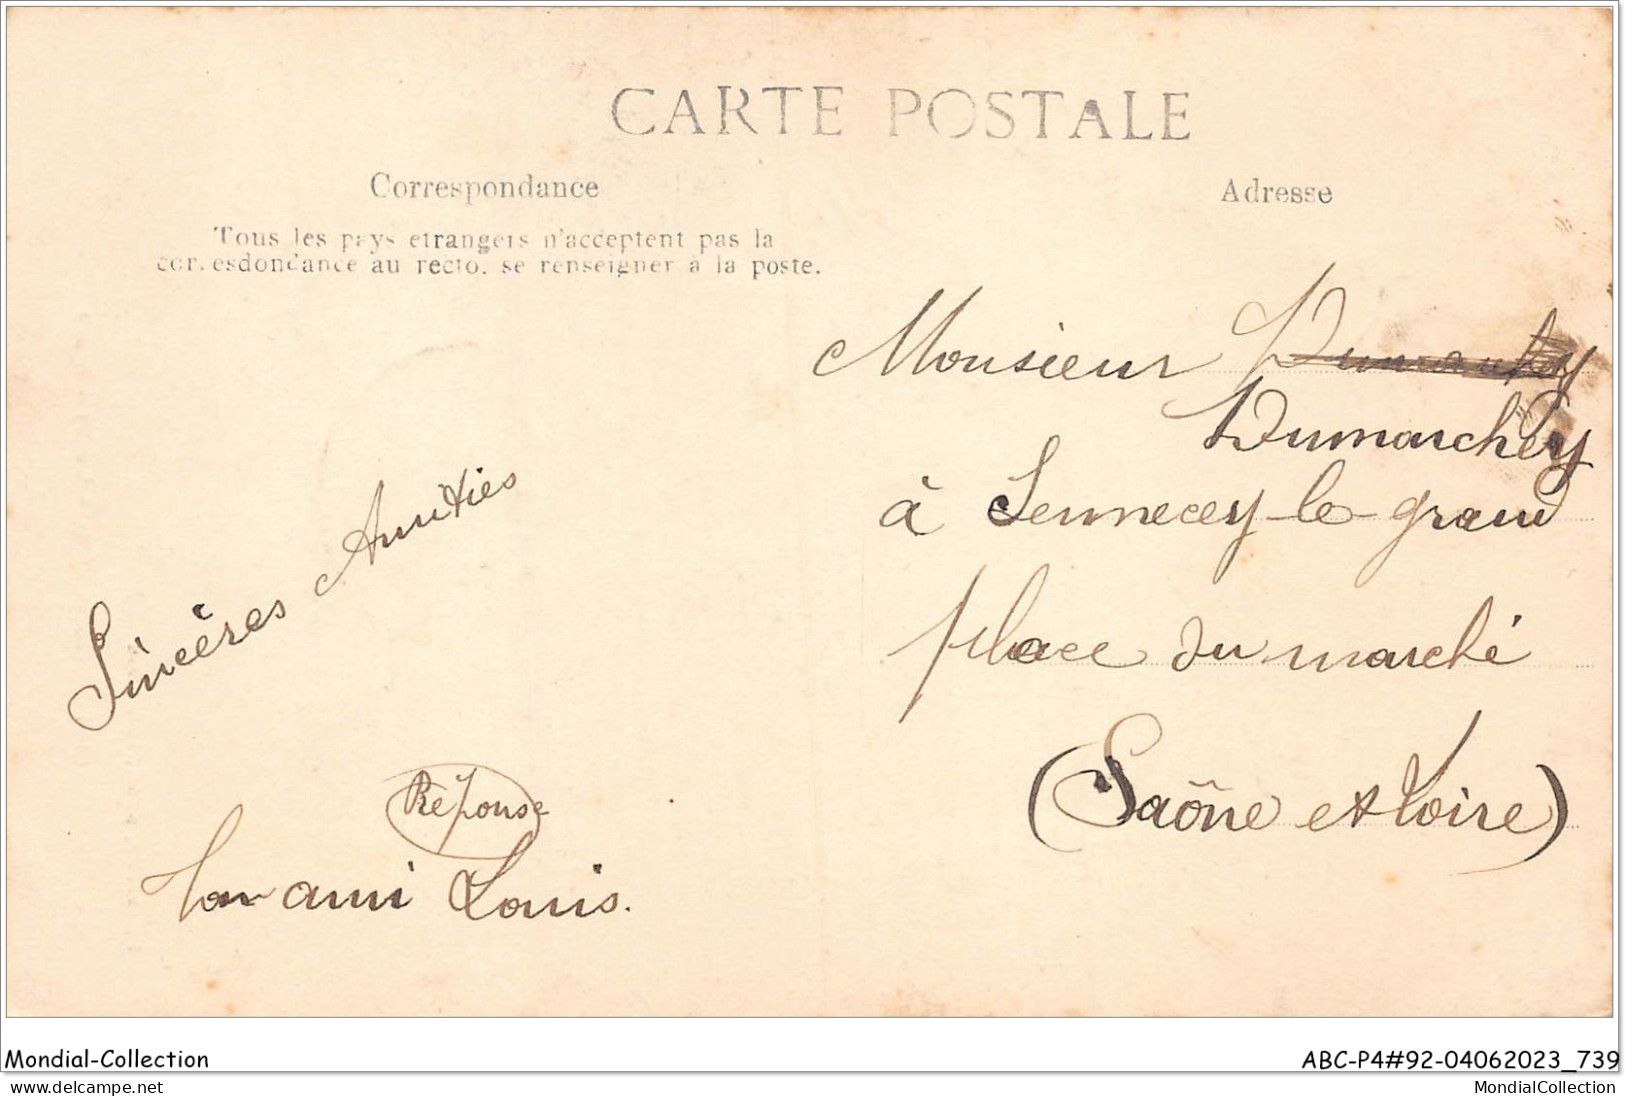 CARTE POSTALE
Correspondance
Adresse
Tous les pays etrangers n'acceptent pas la
corresdondance au recto. se renseigner a la poste.
Monsieur
Dumarchey
à Sennecey-le-grand
place du marché
(Saône et Loire)
Sincères Amitiés
Réponse
Ton ami Louis.
Mondial-Collection
ABC-P4#92-04062023_739
www.delcampe.net
MondialCollection